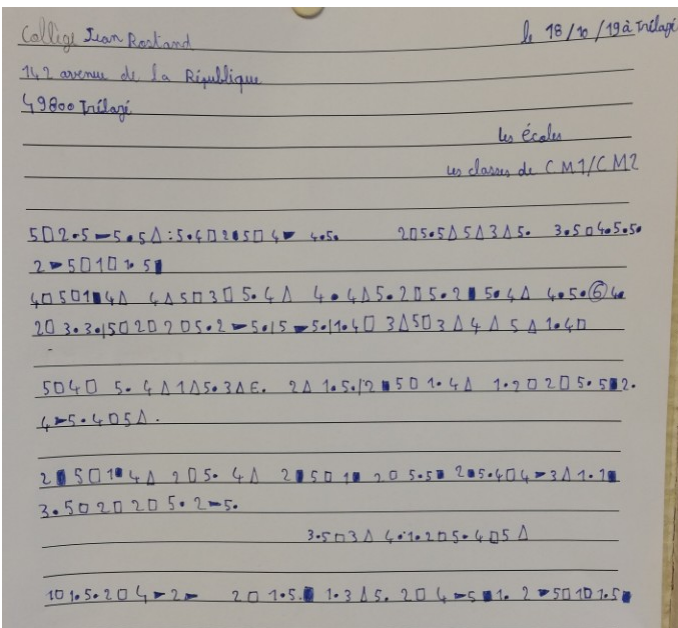 Collège Jean Rostand
le 18/10/19 à Trélazé
142 avenue de la République
49800 Trélazé
Les écoles
Les classes de CM1/CM2
5□2•5►5•5△:5•4□2▮5□4► 4•5• 2□5•5△5△3△5• 3•5□4•5•5•
2►5□1□1•5▮
4□5□1▮4△ 4△5□3□5•4△ 4•4△5•2□5•2▮5•4△ 4•5•⑥4•
2□3•3•15□2□2□5•2►5•15►5•11•4□ 3△5□3△4△5△1•4□
5□4□ 5•4△1△5•3△E• 2△1•5•12▮5□1•4△ 1•2□2□5•5▮2•
4►5•4□5△•
2▮5□1▮4△ 2□5•4△ 2▮5□1▮ 2□5•5▮ 2▮5•4□4►3△1•1▮
3•5□2□2□5•2►5•
3•5□3△ 4•1•2□5•4□5△
1□1•5•2□4►2► 2□1•5•▮ 1•3△5•2□4►5▮1• 2►5□1□1•5▮